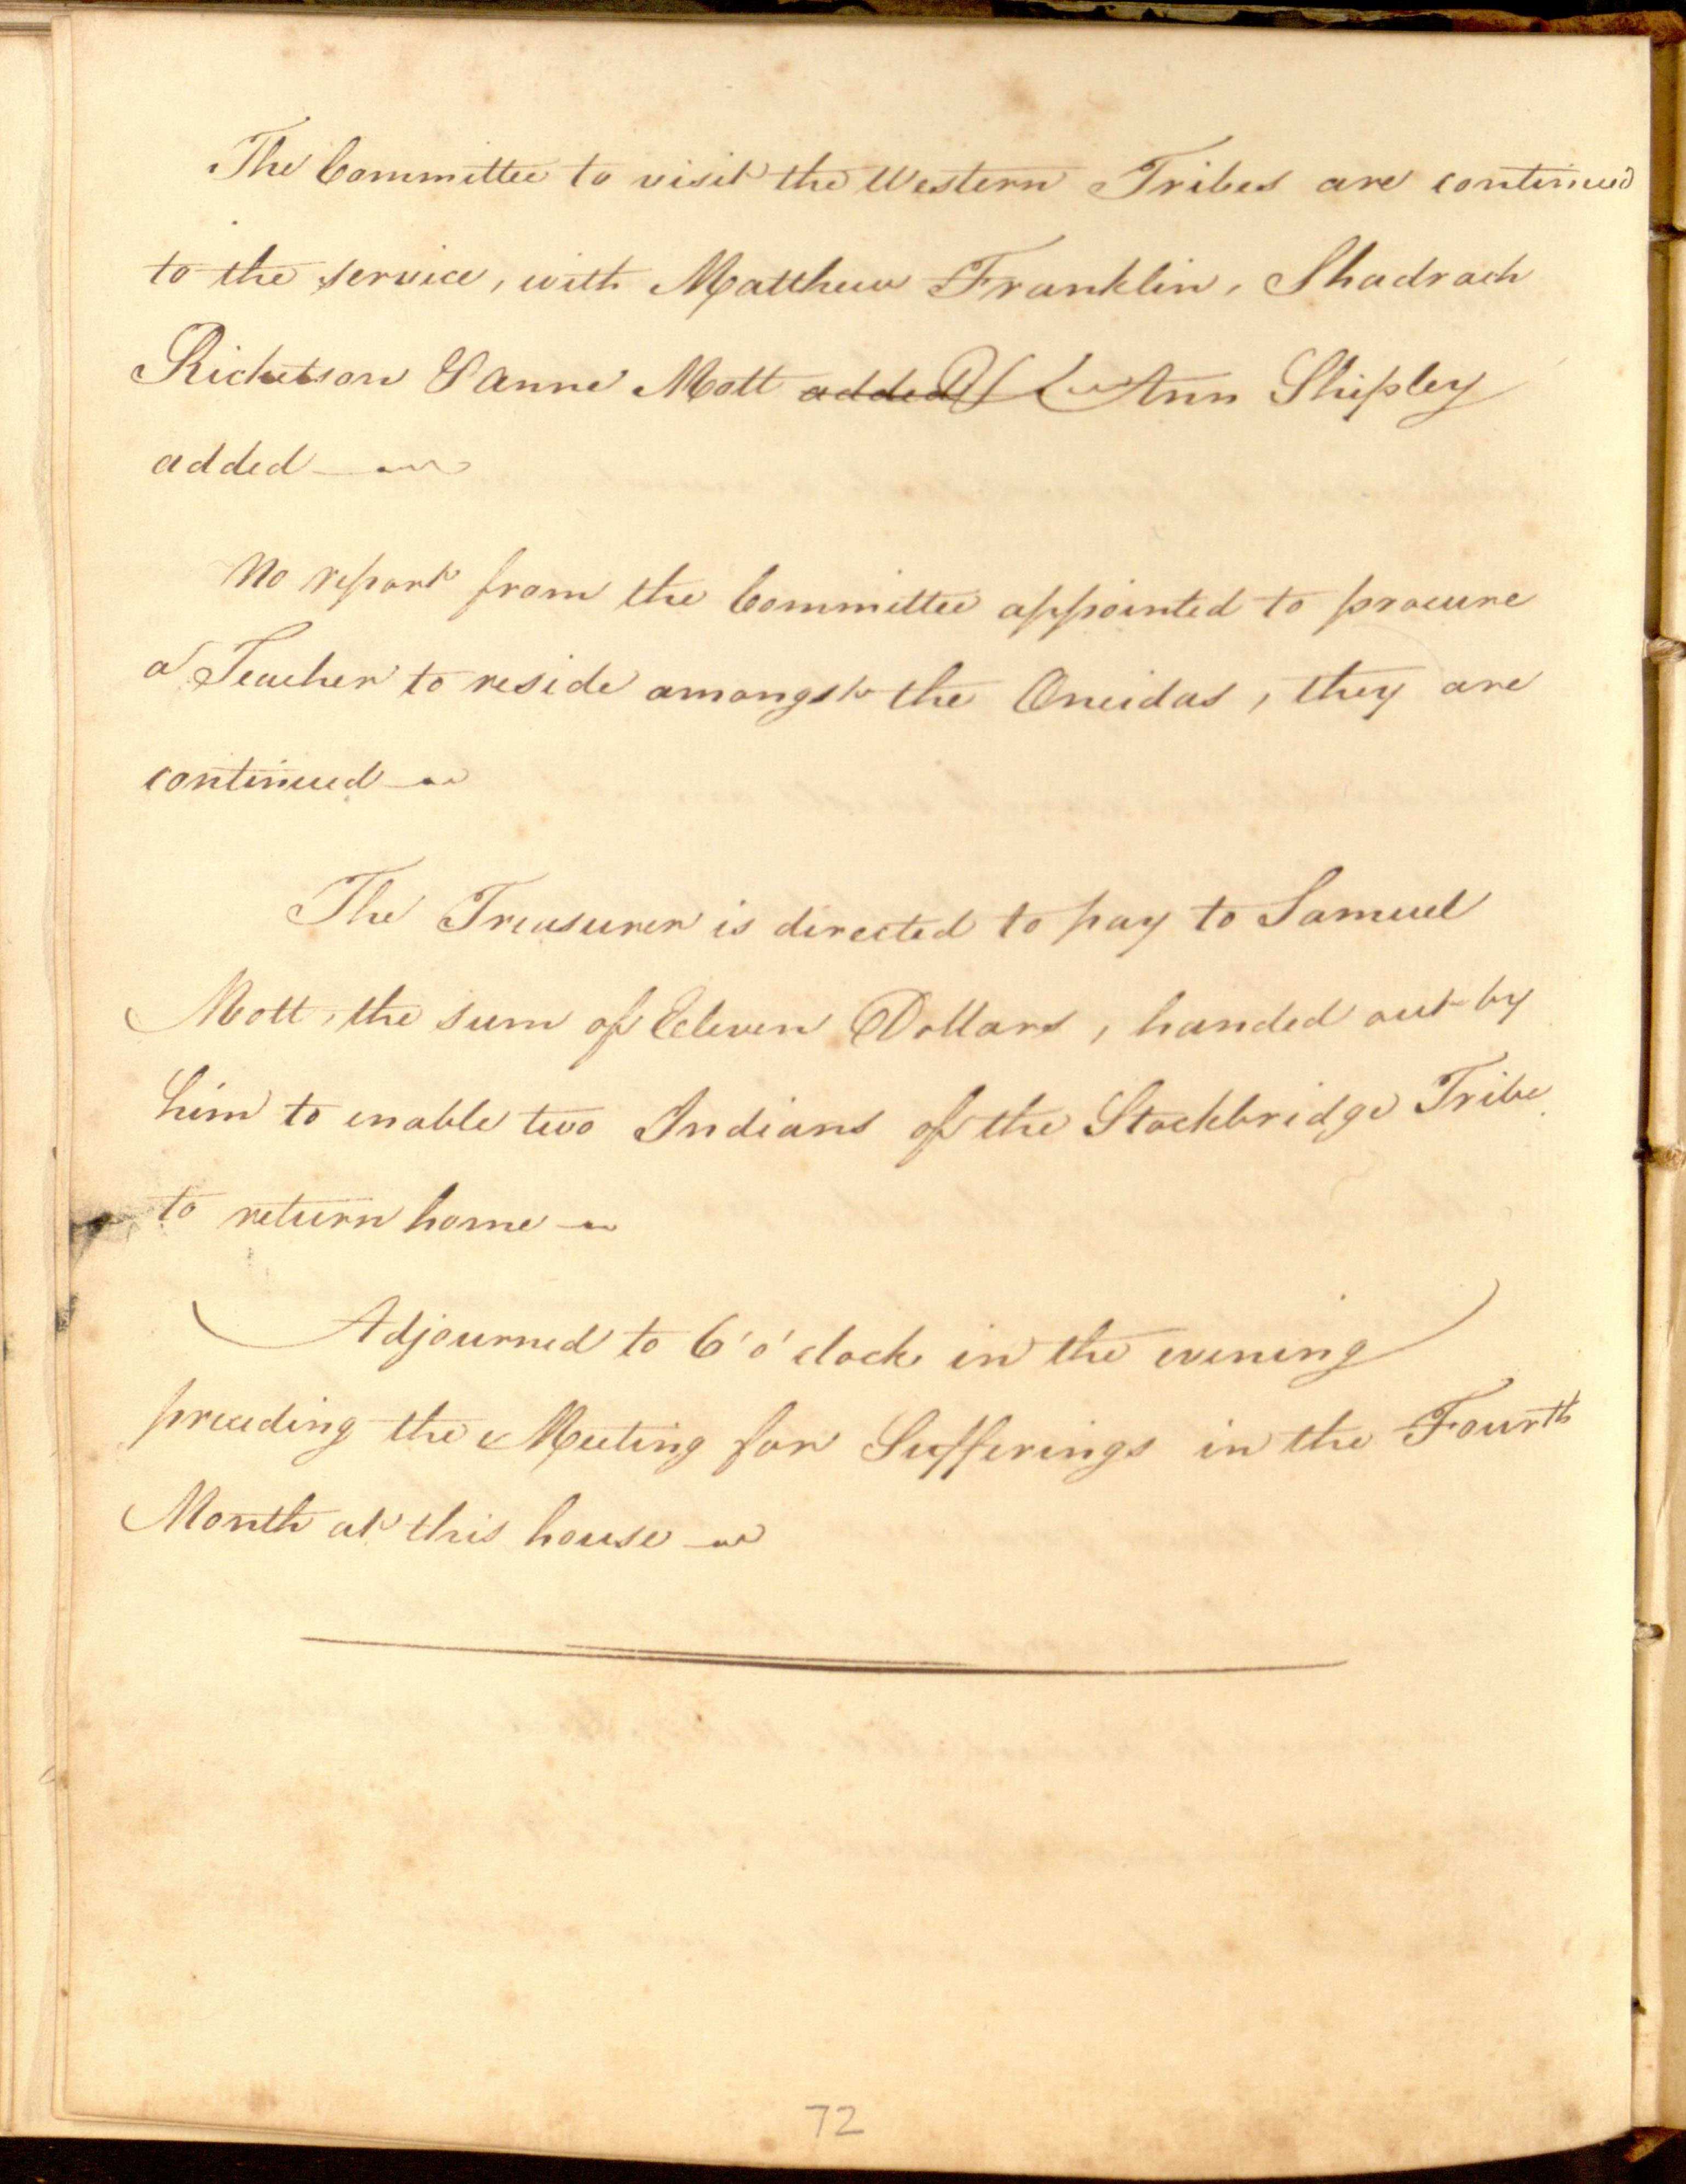 The Committee to visit the Western Tribes are continued
to the service, with Matthew Franklin, Shadrach
Ricketson & Anne Mott added & Ann Shipley
added
No report from the Committee appointed to procure
a Teacher to reside amongst the Oneidas, they are
continued
The Treasurer is directed to pay to Samuel
Mott, the sum of Eleven Dollars, handed out by
him to enable two Indians of the Stockbridge Tribe
to return home
Adjourned to 6 o'clock in the evening
preceding the Meeting for Sufferings in the Fourth
Month at this house
72